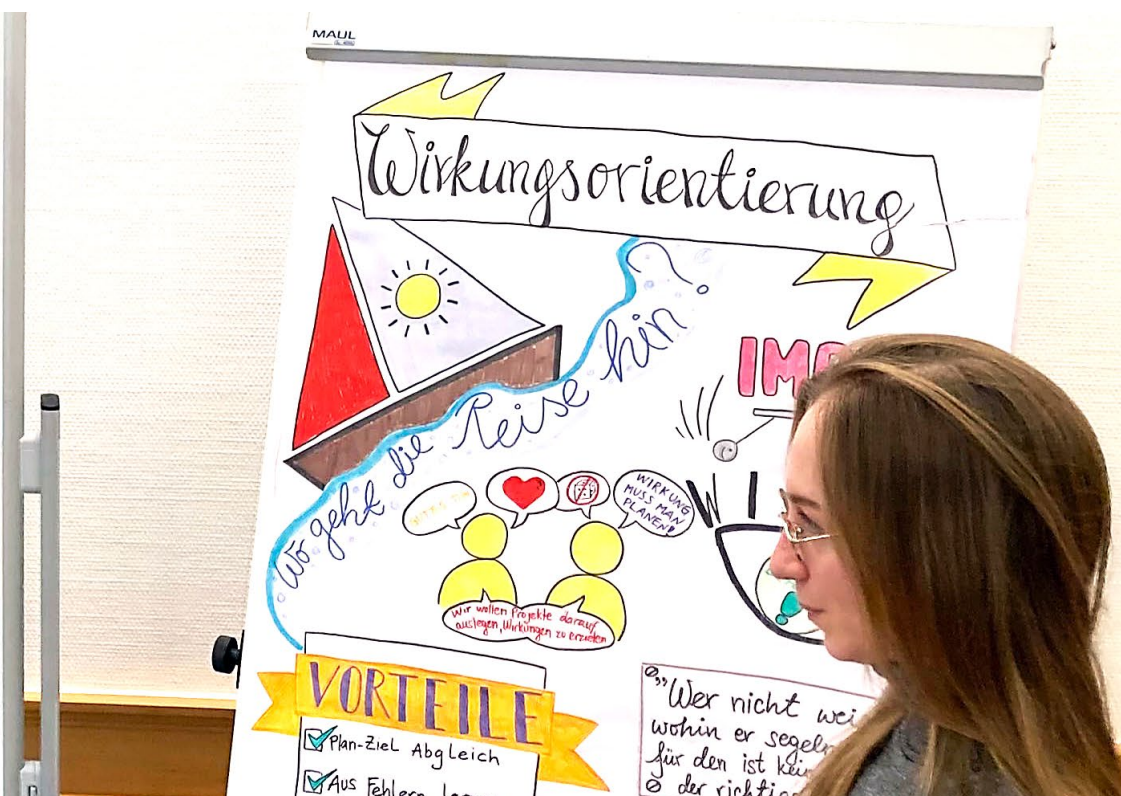 MAUL
Wirkungsorientierung
Wo geht die Reise hin?
IMP
WIRKUNG
MUSS MAN
PLANEN!
WI
Wir wollen Projekte darauf
auslegen, Wirkungen zu erzielen
VORTEILE
Plan-Ziel Abgleich
Aus Fehlern
"Wer nicht wei
wohin er segeln
für den ist kei
der richtig